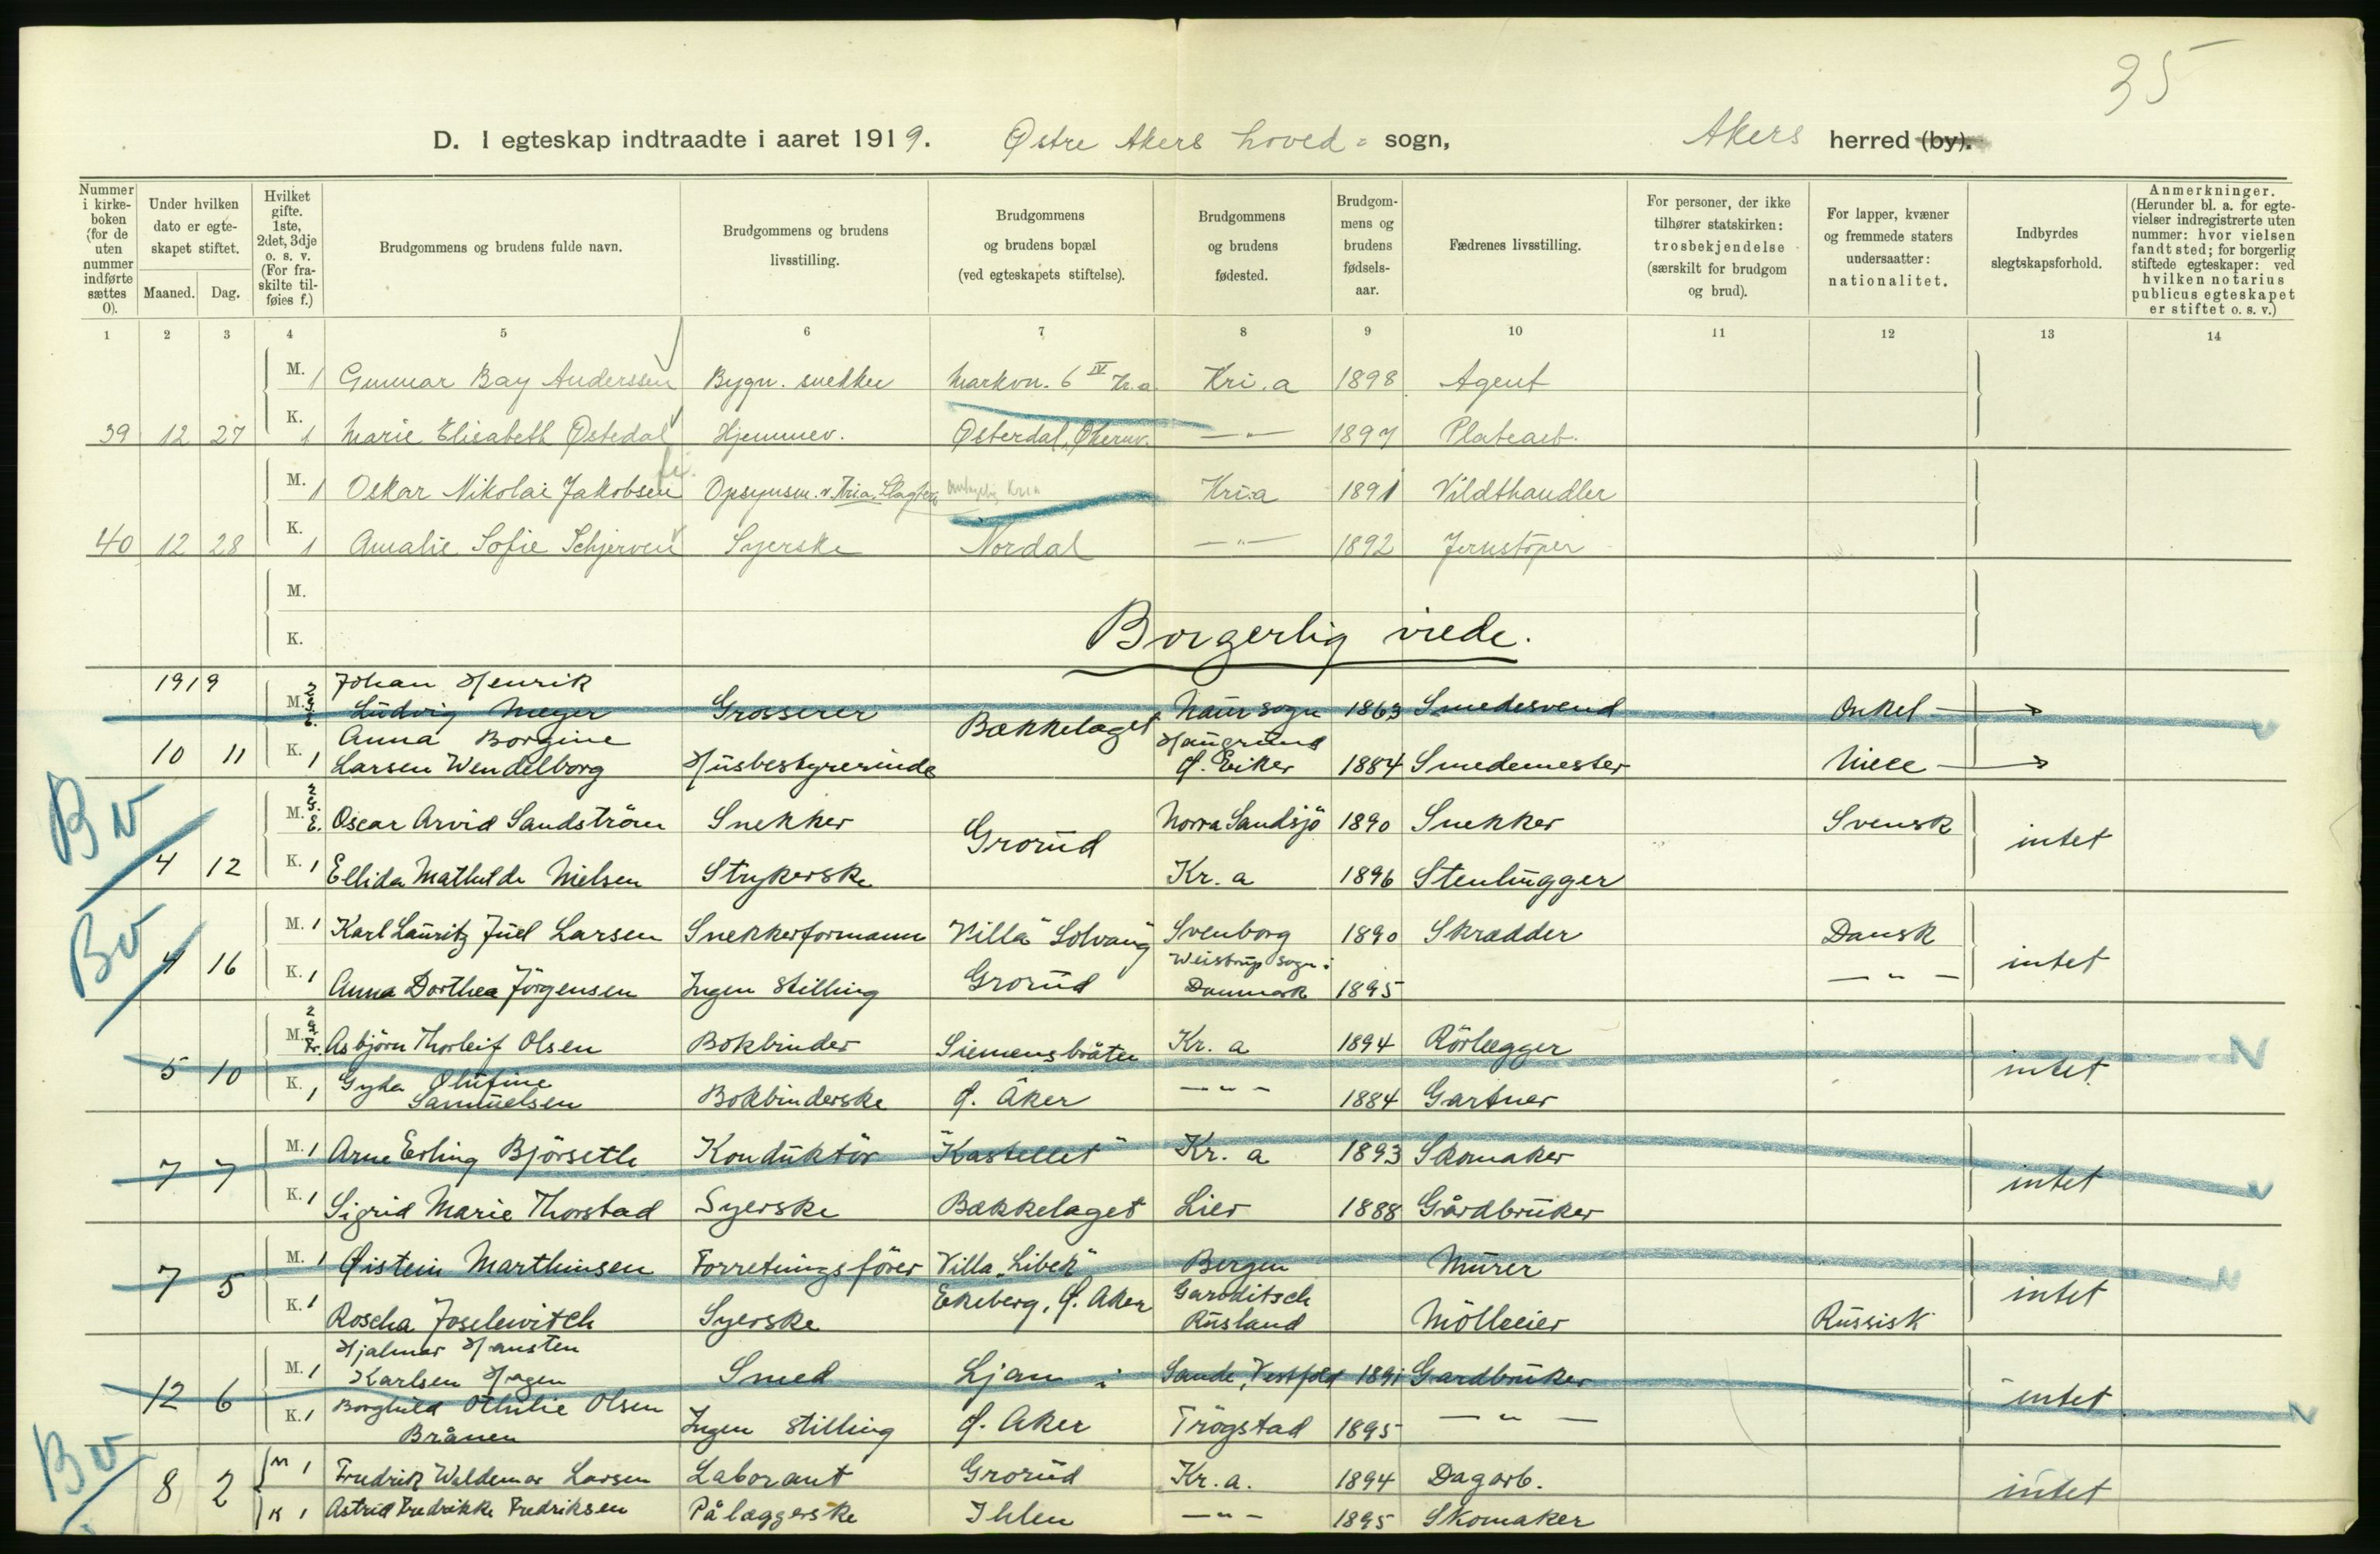 35
D. I egteskap indtraadte i aaret 1919. Østre Akers hoved- sogn, Akers herred (by).
Nummer i kirke-boken (for de uten nummer indførte sættes 0).
Under hvilken dato er egte-skapet stiftet.
Maaned. Dag.
Hvilket gifte. 1ste, 2det, 3dje o. s. v. (For fra-skilte til-føies f.)
Brudgommens og brudens fulde navn.
Brudgommens og brudens livsstilling.
Brudgommens og brudens bopæl (ved egteskapets stiftelse).
Brudgommens og brudens fødested.
Brudgom-mens og brudens fødsels-aar.
Fædrenes livsstilling.
For personer, der ikke tilhører statskirken: trosbekjendelse (særskilt for brudgom og brud).
For lapper, kvæner og fremmede staters undersaatter: nationalitet.
Indbyrdes slegtskapsforhold.
Anmerkninger. (Herunder bl. a. for egte-vielser indregistrerte uten nummer: hvor vielsen fandt sted; for borgerlig stiftede egteskaper: ved hvilken notarius publicus egteskapet er stiftet o. s. v.)
1 2 3 4 5 6 7 8 9 10 11 12 13 14
M. 1 Gunnar Bay Anderssen Bygn. snekker Markvn. 6 IV Kr.a Kri.a 1898 Agent
39 12 27 K. 1 Marie Elisabeth Østedal Hjemmev. Østerdal, Økernv. — " — 1897 Platearb.
M. 1 Oskar Nikolai Jakobsen Opsynsm. v. Kria. Slagteh. Kria Kri.a 1891 Vildthandler
40 12 28 K. 1 Amalie Sofie Schjerven Syerske Nordal — " — 1892 Jernstøper
M.
K.
Borgerlig viede.
1919 Johan Henrik
M. 2 g. E. Ludvig Meyer Grosserer Bækkelaget Naur sogn 1863 Smedesvend Onkel
Anna Borgine Haugrund
10 11 K. 1 Larsen Wendelborg Husbestyrerinde Ø. Eiker 1884 Smedemester Niece
BV M. 2 g. E. Oscar Arvid Sandström Snekker Grorud Norra Sandsjö 1890 Snekker Svensk intet
4 12 K. 1 Ellida Mathilde Nielsen Strykerske Kr. a 1896 Stenhugger
BV M. 1 Karl Lauritz Juel Larsen Snekkerformann Villa "Solvang" Svenborg 1890 Skrædder Dansk intet
4 16 K. 1 Anna Dorthea Jörgensen Ingen stilling Grorud Weistrup sogn i Danmark 1895 — " —
M. 2 g. Fr. Asbjörn Thorleif Olsen Bokbinder Siemensbråten Kr. a 1894 Rörlægger N
5 10 K. 1 Gyda Olufine Samuelsen Bokbinderske Ø. Åker — " — 1884 Gartner intet
M. 1 Arne Erling Björseth Konduktör "Kastellet" Kr. a 1893 Skomaker
7 7 K. 1 Sigrid Marie Thorstad Syerske Bækkelaget Lier 1888 Gårdbruker intet N
M. 1 Øistein Marthinsen Forretningsförer Villa "Libek" Bergen Murer
7 5 K. 1 Roscha Joselewitch Syerske Ekeberg, Ø. Aker Garoditsch Rusland Mölleeier Russisk intet N
Hjalmar Hansten
M. 1 Karlsen Hagen Smed Ljan i Sande, Vestfold 1891 Gardbruker
12 6 K. 1 Borghild Othilie Olsen Brånen Ingen stilling Ø. Aker Trögstad 1895 — " — intet N
BV M 1 Fredrik Waldemar Larsen Laborant Grorud Kr. a. 1894 Dagarb. intet
8 2 K 1 Astrid Fredrikke Fredriksen Pålæggerske Ihlen — " — 1895 Skomaker